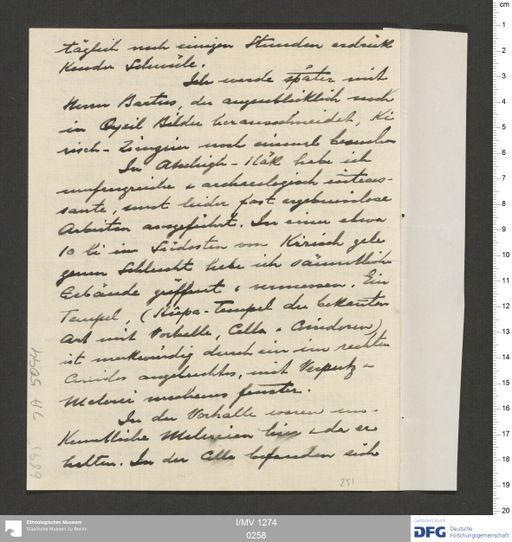 täglich nach einigen Stunden erdrük
kender Schwüle.
Ich werde später mit
Herrn Bartus, der augenblicklich noch
in Qyzil Bilder herausschneidet, Ki
risch - noch einmal besuchen
In habe ich
umfangreiche & archaeologisch interes-
sante, sonst leider fast ergebnislose
Arbeiten ausgeführt. In einer etwa
10 li im Südosten von Kirisch gele
genen Schlucht habe ich sämmtliche
Gebäude geöffnet & vermessen. Ein
Tempel, (Stûpa-Tempel der bekannten
Art mit Vorhalle, Cella &
ist merkwürdig durch ein im rechten
angebrachtes, mit Verputz =
Malerei
In der Vorhalle waren un-
kenntliche Malereien hier & da er
halten. In der Cella befanden sich
251
TA 5094
6895
Ethnologisches Museum
Staatliche Museen zu Berlin
I/MV 1274
0258
Gefördert durch
DFG Deutsche
Forschungsgemeinschaft
cm
1
2
3
4
5
6
7
8
9
10
11
12
13
14
15
16
17
18
19
20